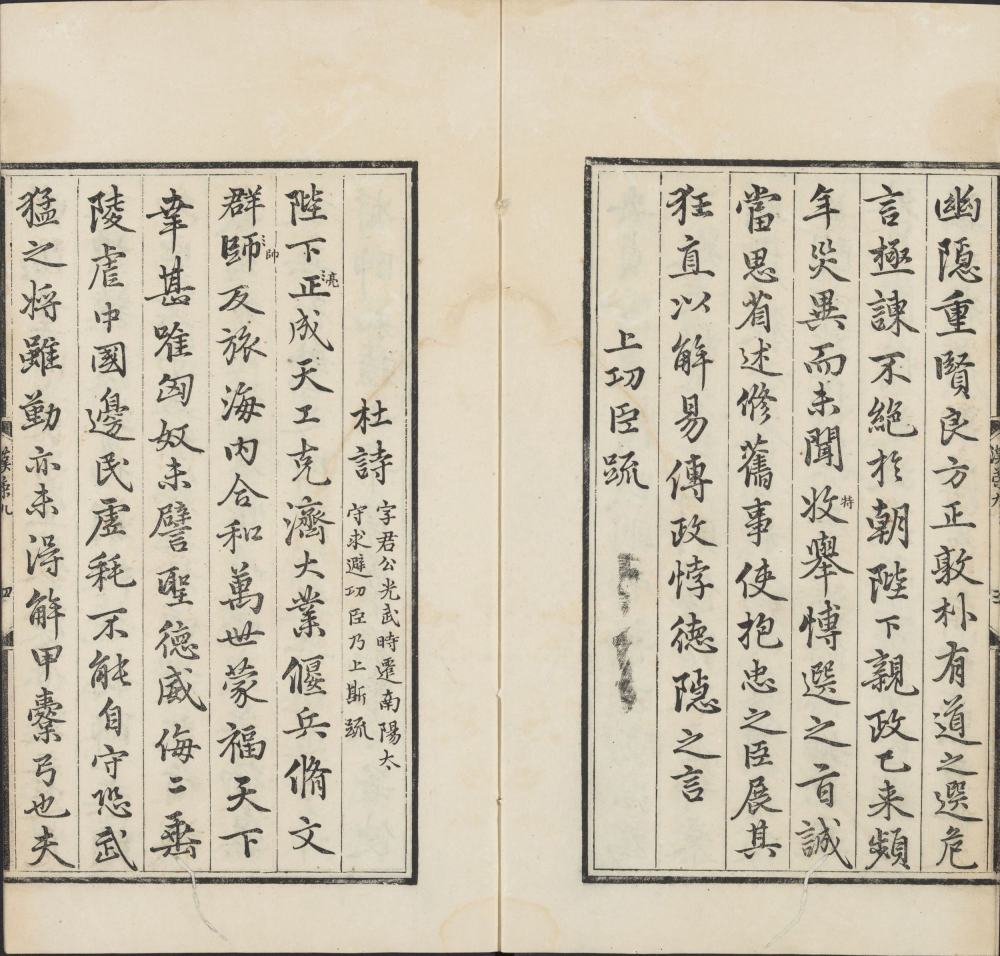 幽隱重賢良方正敦朴有道之選危
言極諫不絕於朝陛下親政已来頻
年災異而未聞牧特舉愽選之盲誠
當思省述修舊事使抱忠之臣展其
狂直以解易傳政悖德隱之言
上功臣疏
杜詩
字君公光武時遷南陽太
守求避功臣乃上斯疏
陛下正亮成天工克濟大業偃兵脩文
群師帥反旅海内合和萬世蒙福天下
幸甚唯匈奴未譬聖德威侮二垂
陵虐中國邊民虛耗不能自守恐武
猛之将雖勤亦未得解甲櫜弓也夫
四